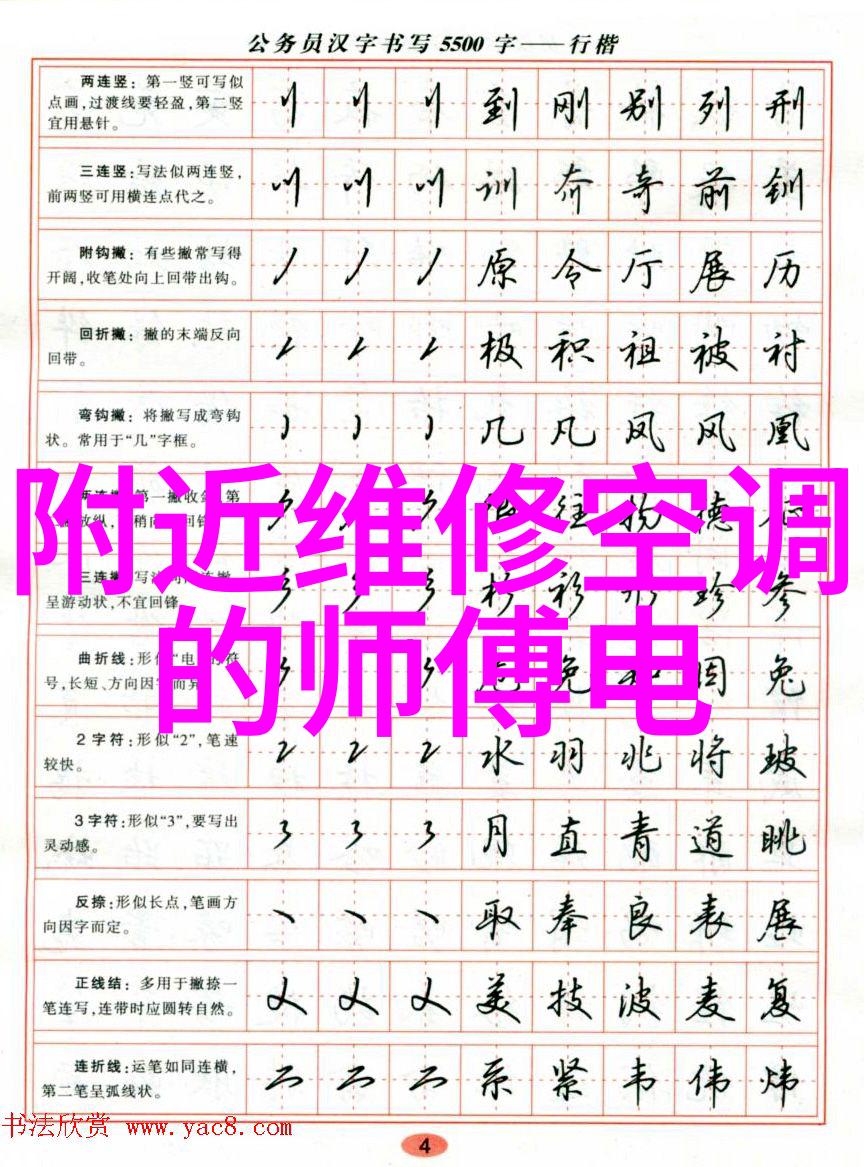 公务员汉字书写5500字——行楷
两连竖：第一竖可写似
点画，过渡线要轻盈，第二竖
宜用悬针。
到 刚 别 列 刑
三连竖：写法似两连竖，
前两竖可用横连点代之。
训 夼 奇 前 钏
附钩撇：有些撇常写得
开阔，收笔处向上回带出钩。
原 令 厅 展 历
回折撇：撇的末端反向
回带。
极 积 祖 被 衬
弯钩撇：将撇写成弯钩
状。常用于“几”字框。
几 凡 凤 风 凰
附近维修空调
的师傅电
两连撇：第一撇收
第
往 德
三连撇
呈游动状，不宜回锋
杉 衫 珍 参
曲折线：形似“电
符
号，长短、方向因字而异
兔
2字符：形似“2”，笔速
较快。
水 羽 兆 将 玻
3字符：形似“3”，要写出
灵动感。
月 直 青 道 眺
反捺：形似长点，笔画方
向因字而定。
取 奉 良 表 展
正线结：多用于撇捺一
笔连写，连带时应圆转自然。
美 技 波 麦 复
连折线：运笔如同连横，
第二笔呈弧线状。
系 紧 韦 伟 炜
书法欣赏 www.yac8.com
4